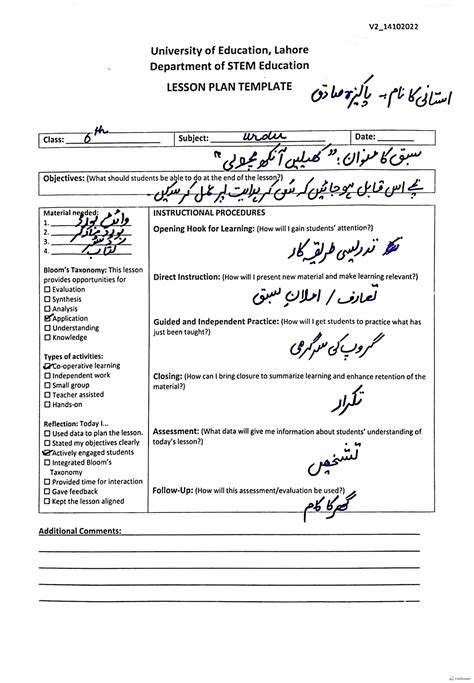 V2_14102022
University of Education, Lahore
Department of STEM Education
LESSON PLAN TEMPLATE
استانی کا نام :- پاکیزہ صادق
Class: 6th Subject: urdu Date:
سبق کا عنوان: "کھیلیں آنکھ مچولی"
Objectives: (What should students be able to do at the end of the lesson?)
بچے اس قابل ہو جائیں کہ سن کر ہدایت پر عمل کر سکیں۔
Material needed:
1. وائٹ بورڈ
2. بورڈ مارکر
3. ڈسٹر
4. کتاب
Bloom's Taxonomy: This lesson
provides opportunities for
☐ Evaluation
☐ Synthesis
☐ Analysis
☑ Application
☐ Understanding
☐ Knowledge
Types of activities:
☑ Co-operative learning
☐ Independent work
☐ Small group
☐ Teacher assisted
☐ Hands-on
Reflection: Today I...
☐ Used data to plan the lesson.
☐ Stated my objectives clearly
☑ Actively engaged students
☐ Integrated Bloom's
Taxonomy
☐ Provided time for interaction
☐ Gave feedback
☐ Kept the lesson aligned
INSTRUCTIONAL PROCEDURES
Opening Hook for Learning: (How will I gain students' attention?)
تدریسی طریقہ کار
Direct Instruction: (How will I present new material and make learning relevant?)
تعارف / اعلان سبق
Guided and Independent Practice: (How will I get students to practice what has
just been taught?)
گروپ کی سرگرمی
Closing: (How can I bring closure to summarize learning and enhance retention of the
material?)
تکرار
Assessment: (What data will give me information about students' understanding of
today's lesson?)
تشخیص
Follow-Up: (How will this assessment/evaluation be used?)
گھر کا کام
Additional Comments: